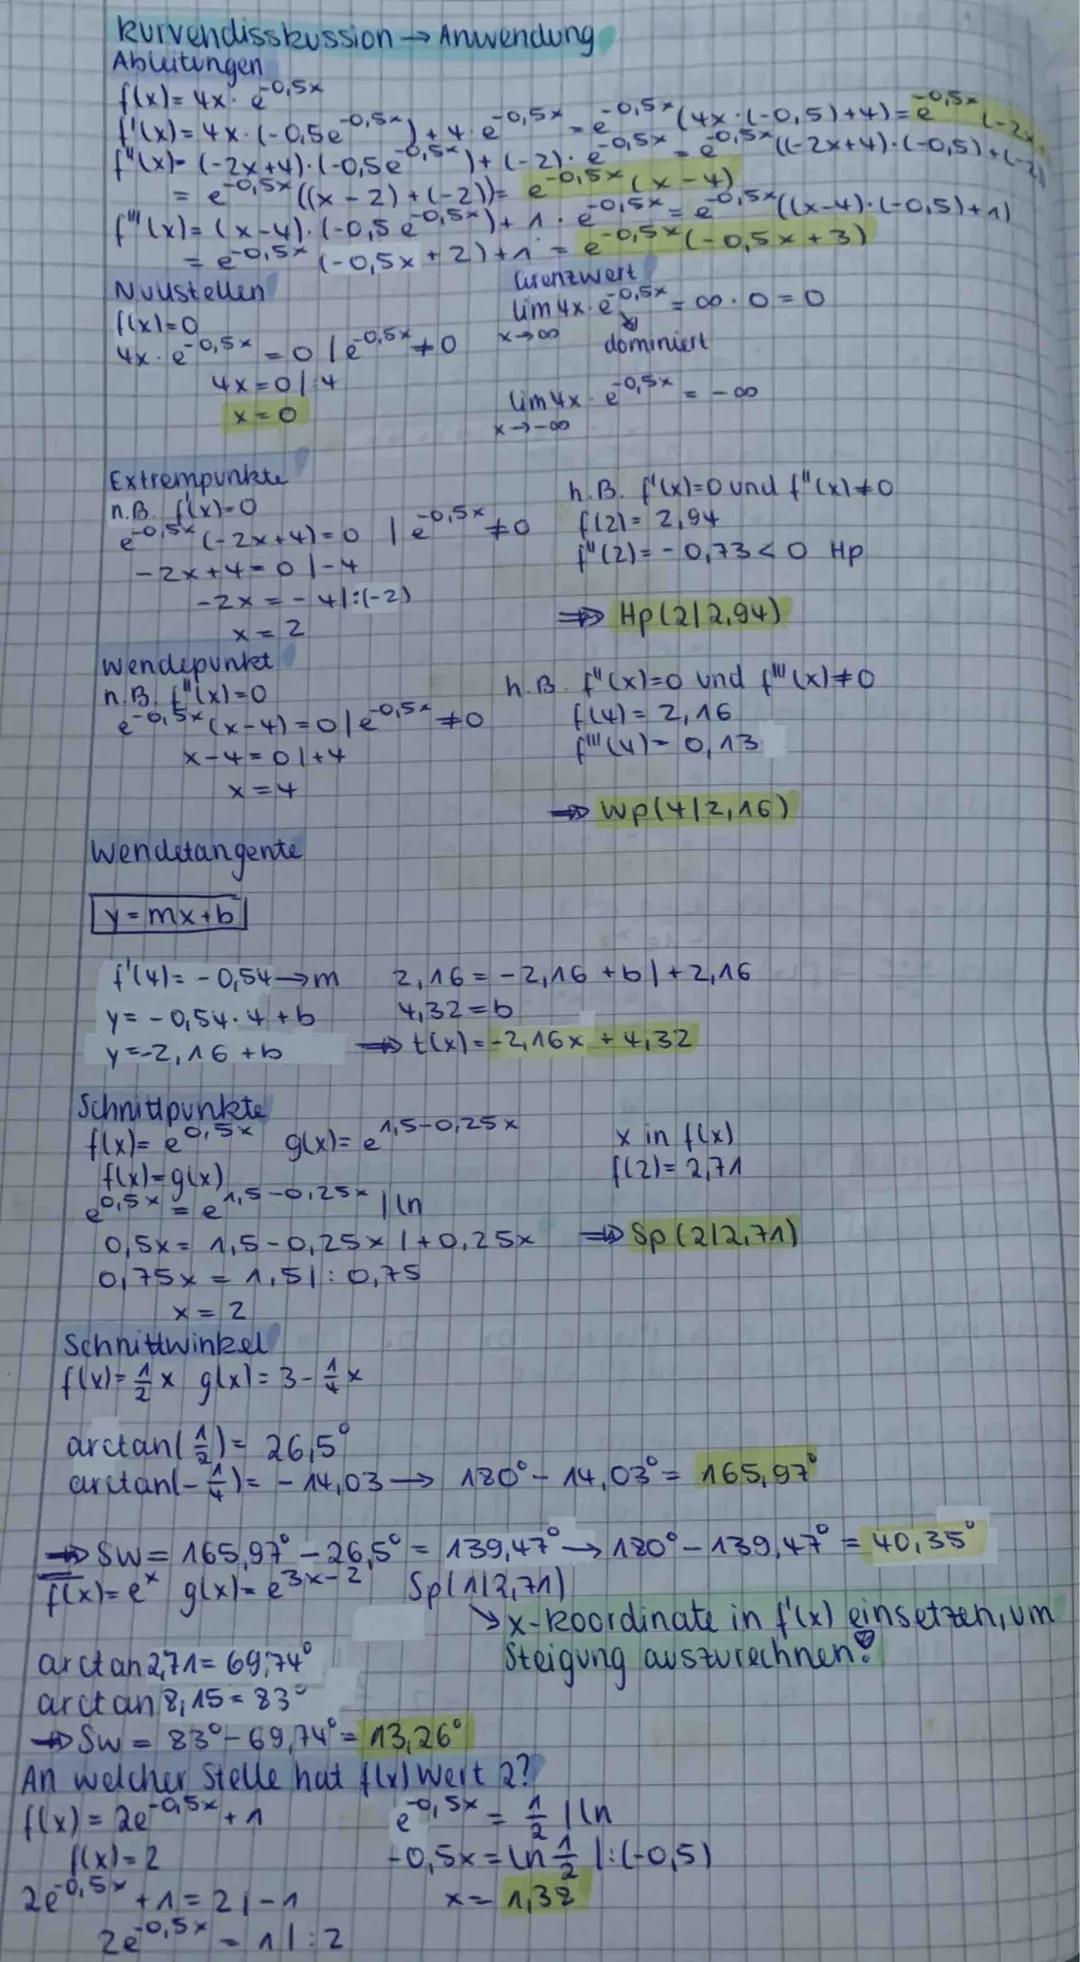 Kurvendisskussion → Anwendung
Ableitungen
f(x)= 4x · e^-0,5x
f'(x)= 4x · (-0,5e^-0,5x) + 4 · e^-0,5x = e^-0,5x (4x · (-0,5)+4) = e^-0,5x (-2x
f''(x)= (-2x+4)·(-0,5e^-0,5x) + (-2) · e^-0,5x = e^-0,5x ((-2x+4)·(-0,5)+(-2))
= e^-0,5x ((x-2)+(-2)) = e^-0,5x (x-4)
f'''(x)= (x-4)·(-0,5e^-0,5x) + 1 · e^-0,5x = e^-0,5x ((x-4)·(-0,5)+1)
= e^-0,5x (-0,5x+2)+1 = e^-0,5x (-0,5x+3)
Nullstellen
f(x)=0
4x · e^-0,5x = 0 | e^-0,5x ≠0
4x=0 |:4
x=0
Grenzwert
lim 4x · e^-0,5x = ∞ · 0 = 0
x→∞ dominiert
lim 4x · e^-0,5x = -∞
x→-∞
Extrempunkte
n.B. f'(x)=0
e^-0,5x (-2x+4)=0 | e^-0,5x ≠0
-2x+4=0 |-4
-2x = -4 |:(-2)
x=2
h.B. f'(x)=0 und f''(x)≠0
f(2)= 2,94
f''(2)= -0,73<0 Hp
⇒ Hp(2|2,94)
Wendepunkt
n.B. f''(x)=0
e^-0,5x (x-4)=0 | e^-0,5x ≠0
x-4=0 |+4
x=4
h.B. f''(x)=0 und f'''(x)≠0
f(4)= 2,16
f'''(4)= 0,13
⇒ Wp(4|2,16)
Wendetangente
y=mx+b
f'(4)= -0,54 → m
y= -0,54·4+b
y=-2,16+b
2,16 = -2,16 +b |+2,16
4,32=b
⇒ t(x)=-2,16x + 4,32
Schnittpunkte
f(x)= e^0,5x g(x)= e^1,5-0,25x
f(x)=g(x)
e^0,5x = e^1,5-0,25x | ln
0,5x= 1,5-0,25x |+0,25x
0,75x = 1,5 |:0,75
x=2
x in f(x)
f(2)= 2,71
⇒ Sp(2|2,71)
Schnittwinkel
f(x)= 1/2 x g(x)= 3- 1/4 x
arctan(1/2)= 26,5°
arctan(-1/4)= -14,03 → 180°-14,03°= 165,97°
⇒ SW= 165,97° -26,5° = 139,47° → 180°-139,47° = 40,35°
f(x)= e^x g(x)= e^3x-2 Sp(1|2,71)
↘ x-Koordinate in f'(x) einsetzen, um
Steigung auszurechnen!
arctan 2,71= 69,74°
arctan 8,15= 83°
⇒ SW = 83°-69,74°= 13,26°
An welcher Stelle hat f(x) Wert 2?
f(x)= 2e^-0,5x +1
f(x)=2
2e^-0,5x +1=2 |-1
2e^-0,5x = 1 |:2
e^-0,5x = 1/2 | ln
-0,5x = ln 1/2 |:(-0,5)
x= 1,38